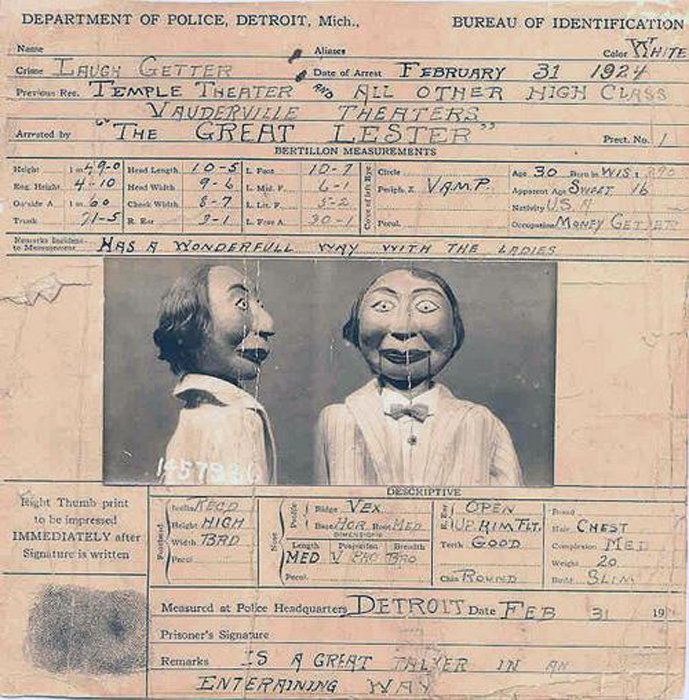 DEPARTMENT OF POLICE, DETROIT, Mich., BUREAU OF IDENTIFICATION
Name Aliases Color WHITE
Crime LAUGH GETTER Date of Arrest FEBRUARY 31 1924
Previous Rec. TEMPLE THEATER AND ALL OTHER HIGH CLASS
VAUDERVILLE THEATERS
Arrested by "THE GREAT LESTER" Prect. No. 1
BERTILLON MEASUREMENTS
Height 1 m 49-0 Head Length 10-5 L. Foot 10-7 Circle Age 30 Born in WIS
Eng. Height 4-10 Head Width 9-6 L. Mid. F. 6-1 Periph. Z VAMP. Apparent Age SWEET 16
Outside A. 1 m 60 Cheek Width 8-7 L. Lit. F. 5-2 Nativity U.S.A
Trunk 71-5 R. Ear 9-1 L. Fore A. 30-1 Pecul. Occupation MONEY GETTER
Color of Left Eye
Remarks Incident to Measurement HAS A WONDERFULL WAY WITH THE LADIES
DESCRIPTIVE
Right Thumb print
to be impressed
IMMEDIATELY after
Signature is written
Forehead
Inclin. RECD
Height HIGH
Width BRD
Pecul.
Nose
Profile
Ridge VEX
Base HOR Root MED
DIMENSIONS
Length Projection Breadth
MED V PRO BRO
Pecul.
R. Ear
OPEN
UP. RIM FLT.
Teeth GOOD
Chin ROUND
Beard
Hair CHEST
Complexion MED
Weight 20
Build SLIM
Measured at Police Headquarters DETROIT Date FEB 31 19
Prisoner's Signature
Remarks IS A GREAT TALKER IN AN
ENTERAINING WAY